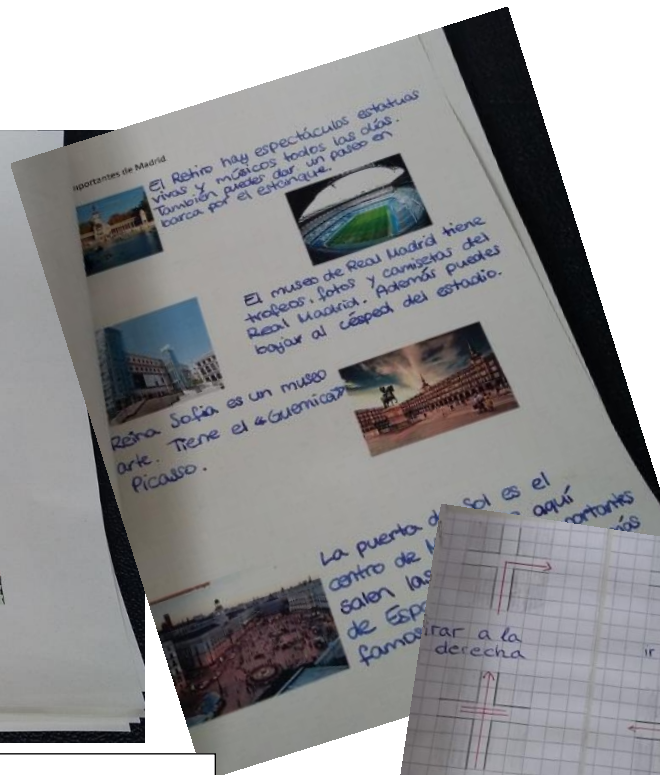 mportantes de Madrid
El Retiro hay espectáculos estatuas
vivas y músicos todos los días.
También puedes dar un paseo en
barca por el estanque.
El museo de Real Madrid tiene
trofeos, fotos y camisetas del
Real Madrid. Además puedes
bajar al césped del estadio.
Reina Sofía es un museo
arte. Tiene el «Guernica»
Picasso.
La puerta d Sol es el
centro de aquí
salen las portantes
de Esp más
famos
irar a la
derecha
ir